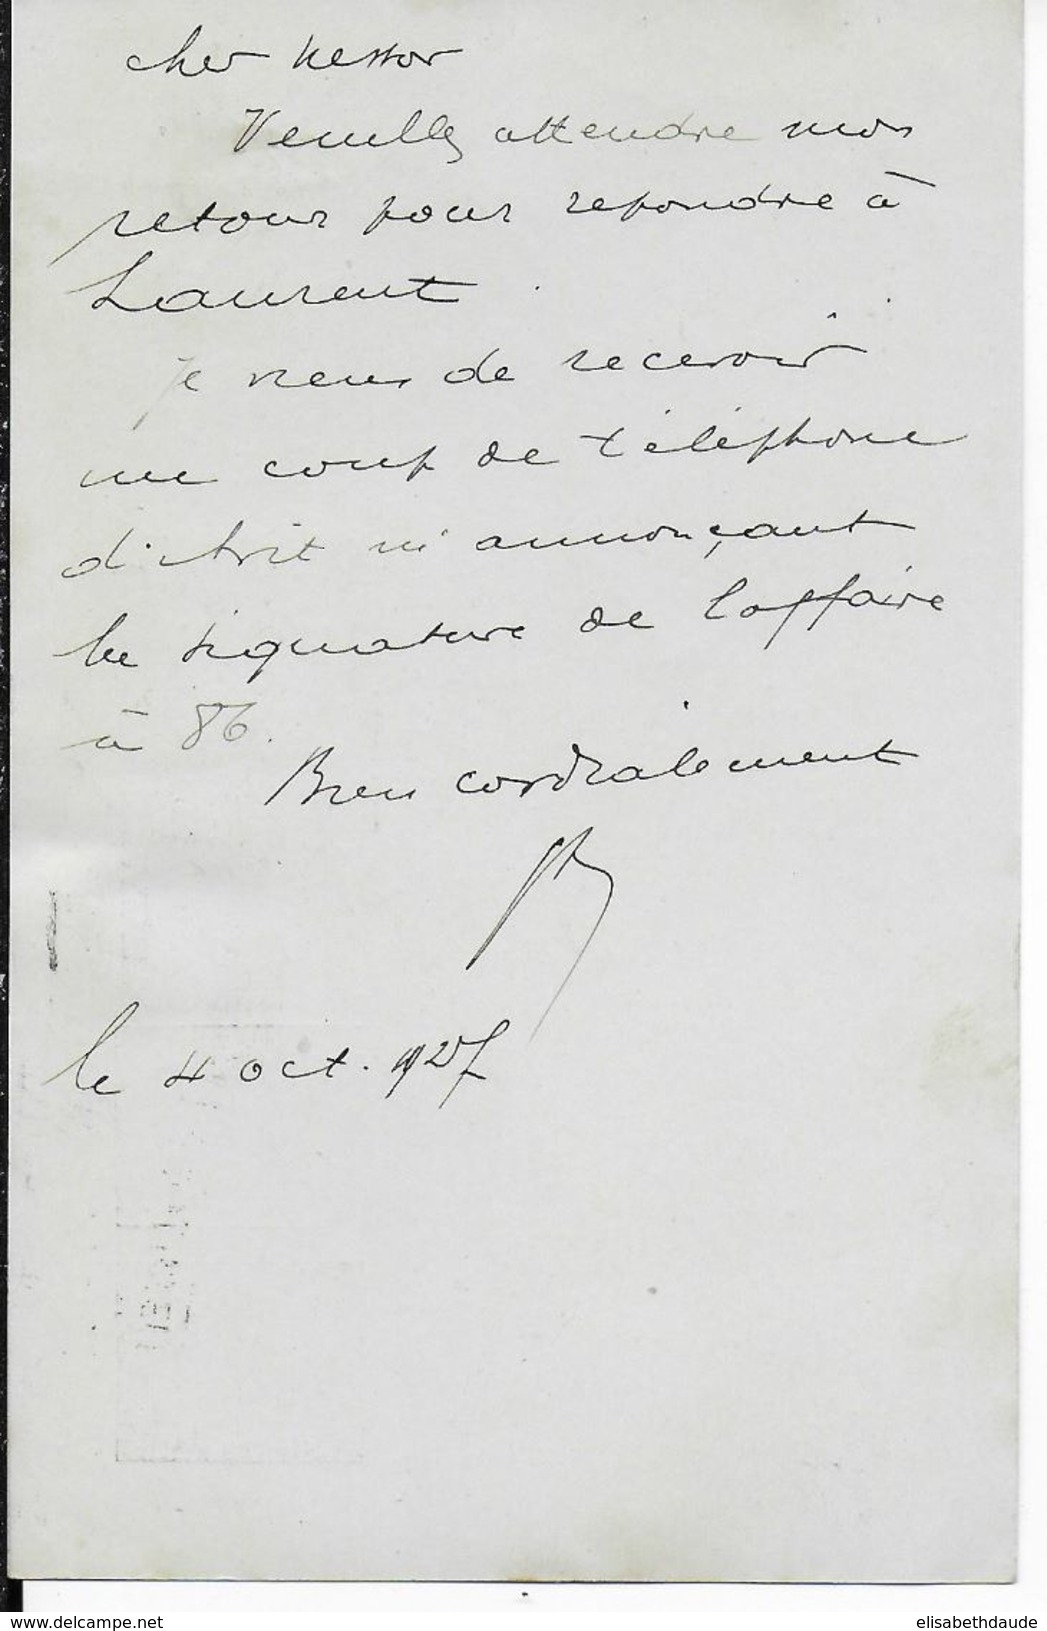 cher Nestor
Veuillez attendre mon
retour pour repondre à
Laurent.
Je viens de recevoir
un coup de téléphone
m'annonçant
la signature de l'affaire
à 86.
Bien cordialement
le 4 oct. 1927
www.delcampe.net
elisabethdaude